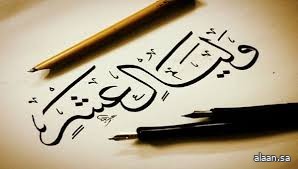 وليال عشر
alaan.sa